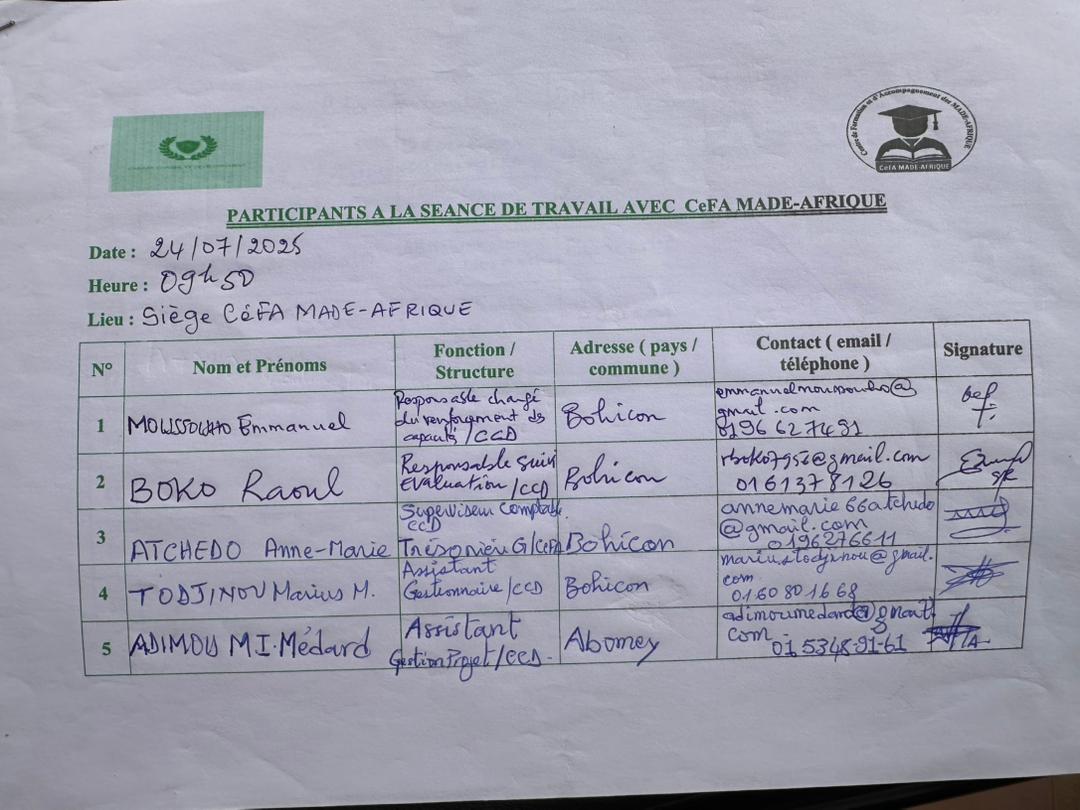 Centre de Formation et d'Accompagnement des MADE-AFRIQUE
CeFA MADE-AFRIQUE
PARTICIPANTS A LA SEANCE DE TRAVAIL AVEC CeFA MADE-AFRIQUE
Date : 24/07/2025
Heure : 09h50
Lieu : Siège CéFA MADE-AFRIQUE
N° Nom et Prénoms Fonction / Structure Adresse ( pays / commune ) Contact ( email / téléphone ) Signature
1 Emmanuel Responsable chargé
du renforcement des
capacités / CCD Bohicon gmail.com
2 BOKO Raoul Responsable Suivi
Evaluation / CCD Bohicon rboko7956@gmail.com
01 61378126
3 ATCHEDO Anne-Marie Superviseur Comptable
CCD
Bohicon annemarie66atchedo
@gmail.com
0196276611
4 TODJINOU Marius M. Assistant
Gestionnaire / CCD Bohicon
com
01 60 80 16 68
5 ADIMOU M.I. Médard Assistant
Gestion Projet / CCD Abomey
com
01 5348-91-61